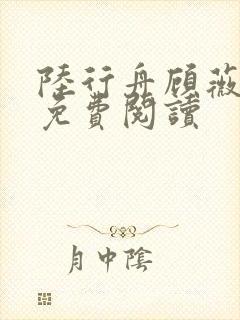 陸行舟顾薇
免費閱讀
月中陰